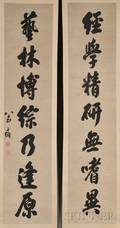 經學精研無嗜異
藝林博綜乃逢原